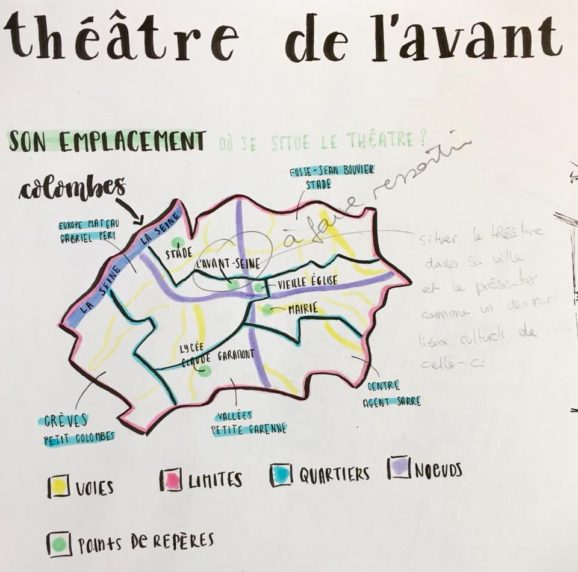 théâtre de l'avant
SON EMPLACEMENT OÙ SE SITUE LE THÉATRE?
colombes
FOSSE-JEAN BOUVIER
STADE
à faire ressortir
EUROPE
GABRIEL PÉRI
LA SEINE LA SEINE
STADE
L'AVANT-SEINE
VIEILLE ÉGLISE
MAIRIE
situer le théâtre
dans sa ville
et le présenter
comme un des
lieux culturels de
celle-ci
LYCÉE
CLAUDE GARAMONT
CENTRE
AGENT SARRE
GRÈVES
PETIT COLOMBES
VALLÉES
PETITE GARENNE
VOIES LIMITES QUARTIERS NOEUDS
POINTS DE REPÈRES